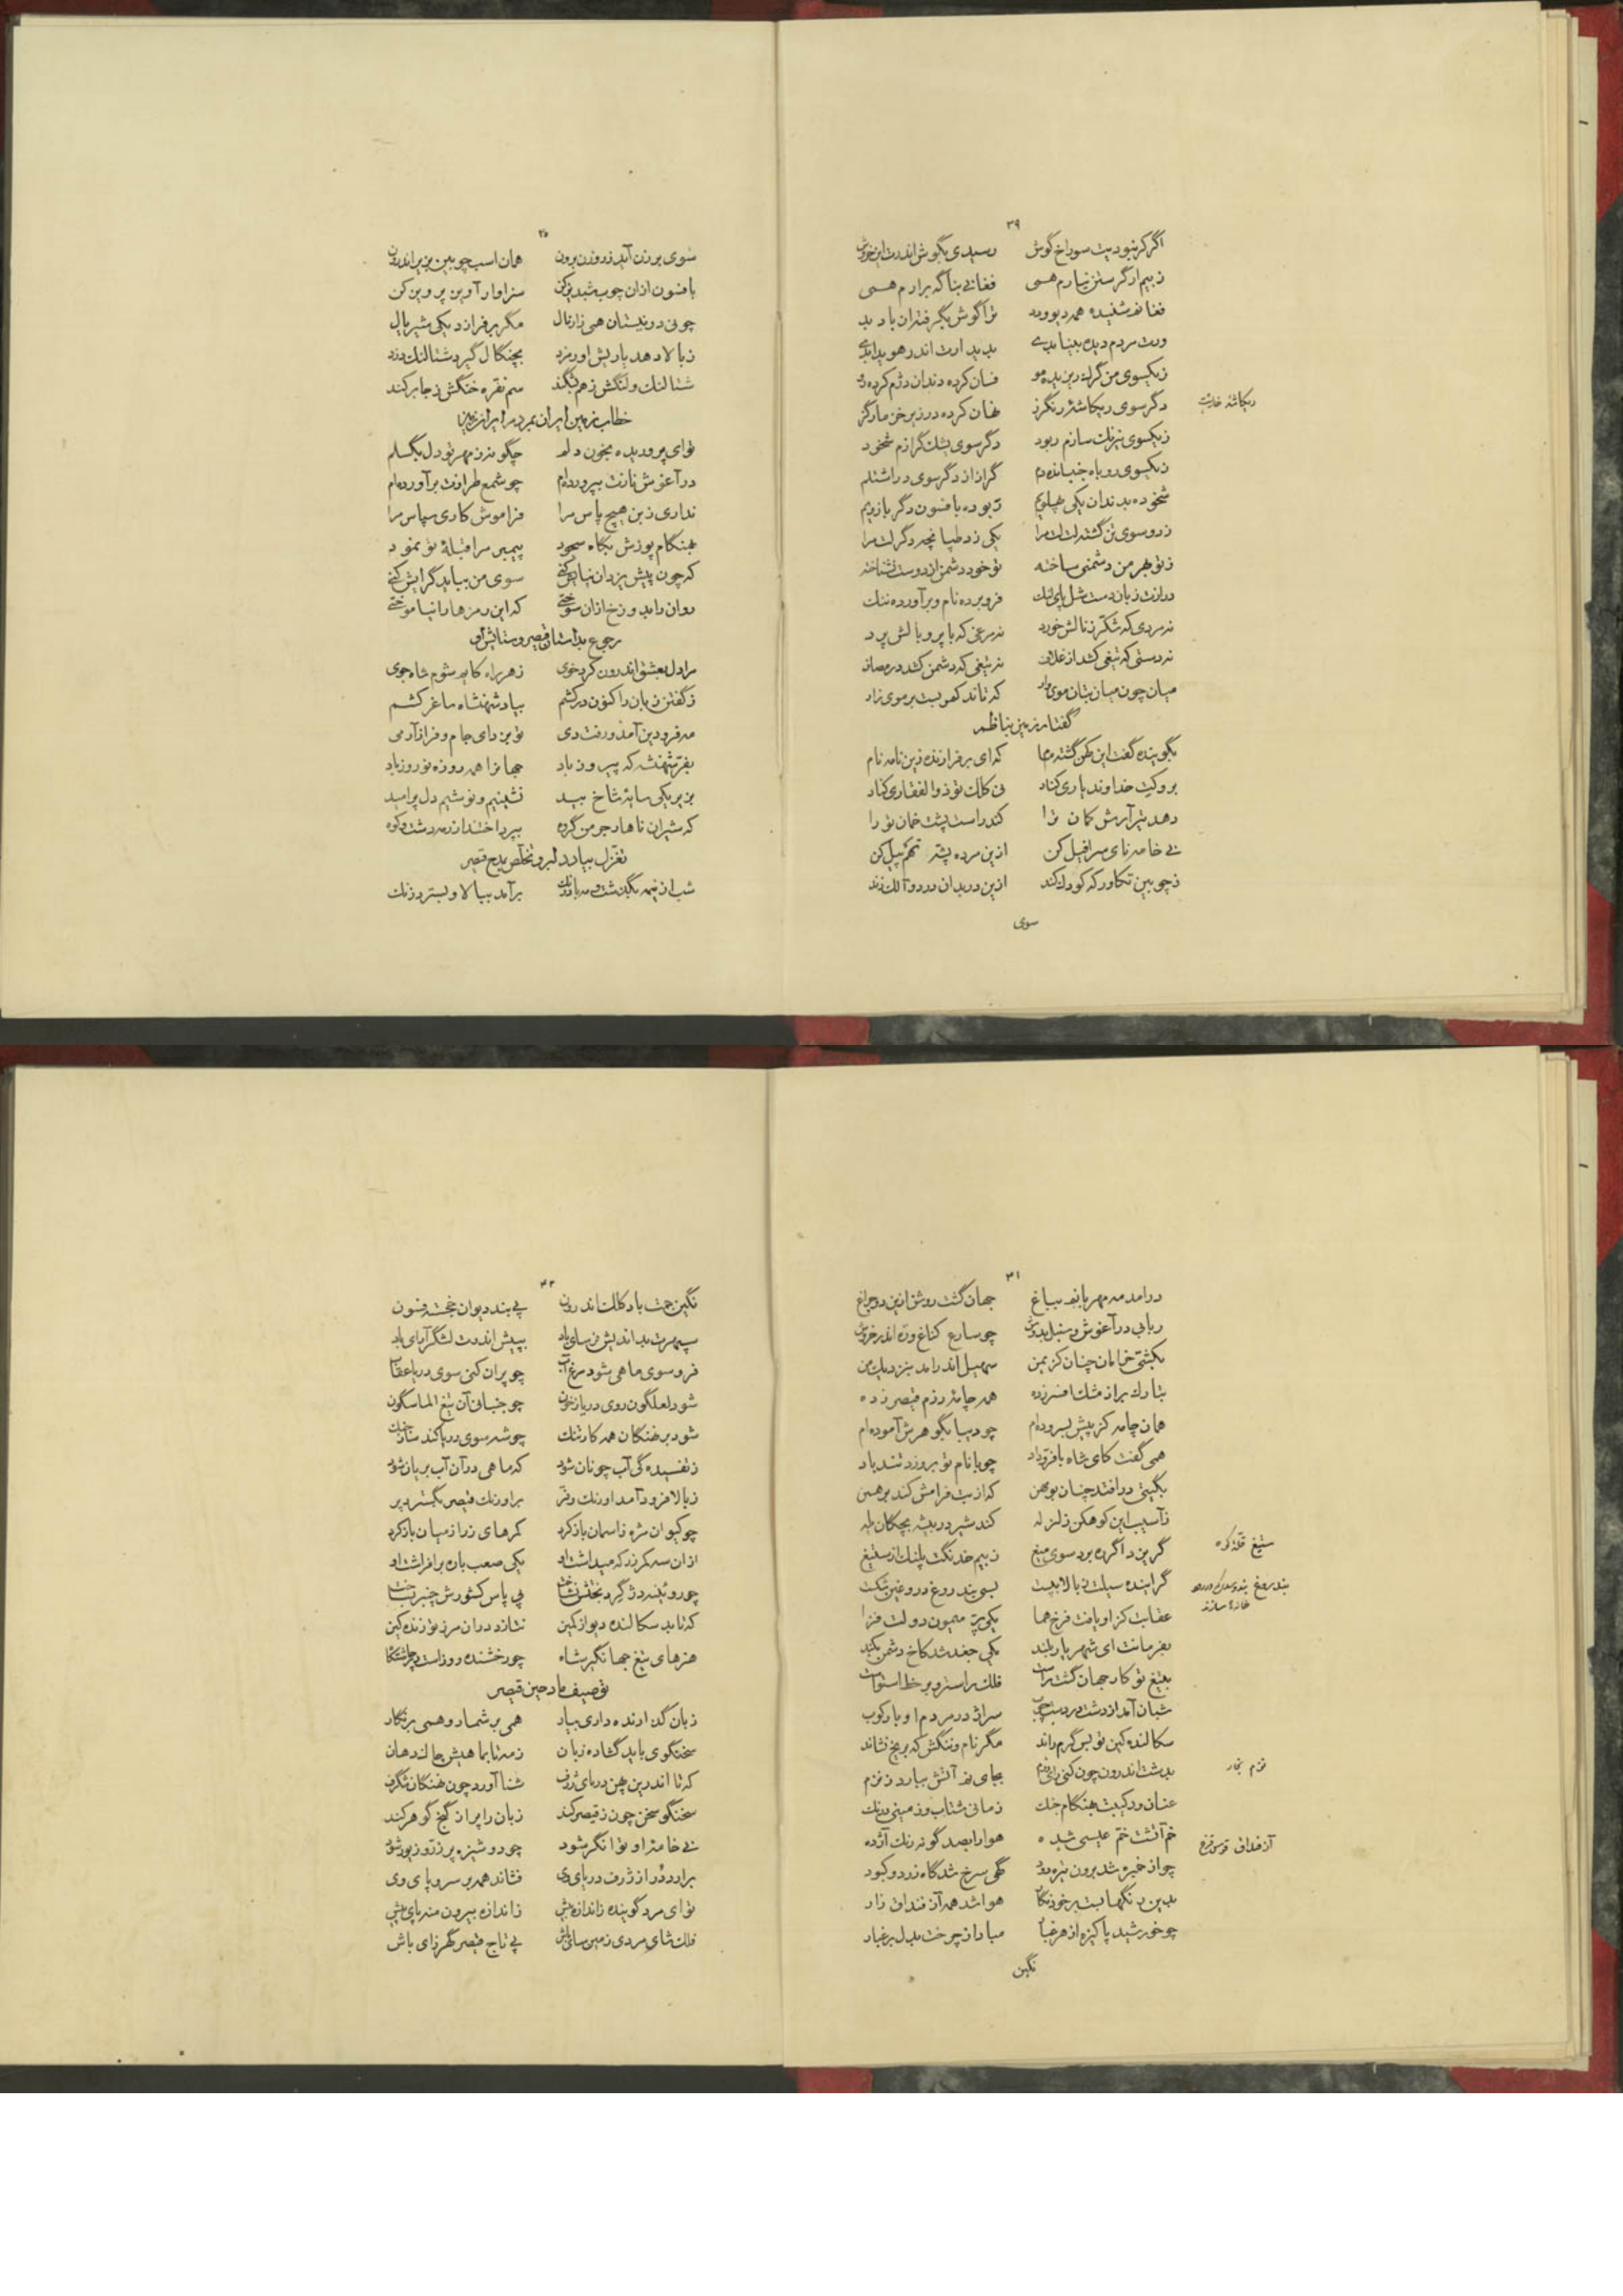 ۲۹
اگر کر نبودیت سوراخ گوش رسیدی بگوش اندرت این خروش
ز بیم ار گرستن نیارم همی فغانی بناگه برارم همی
فغانم شنیده همه دیو و دد ترا گوش بگرفته زان باد بد
ورت مردم دیده بینا بدی بدید ارت اندر هویدا بدی
ز یکسوی من گرگ درنده مو فسان کرده دندان دژم کرده رو
دگر سوی ریکاشهٔ رنگرز نهان کرده در زیر خز مار گز
ریکاشه خارپشت
ز یکسوی نیرنگ سازم ربود دگر سوی پشک گرازم شخود
ز یکسوی روباه جنبانده دم گراز از دگر سوی در اشتلم
شخوده بدندان یکی پهلویم ربوده بافسون دگر بازویم
ز دو سوی تن گشته لت لت مرا یکی زد طپانچه دگر لت مرا
ز تو بهر من دشمنی ساخته تو خود دشمن از دوست نشناخته
درازت زبان دست شل پای لنگ فرو برده نام و برآورده ننگ
نه مردی که شکر ز نالش خورد نه مرغی که با پر و بالش پرد
نه دستی که تیغی کشد از غلاف نه تیغی که دشمن کشد در مصاف
میان چون میان بتان موی وار که تاند کهی بست بر موی زار
گفتار زمین بناظم
بگوینده گفت این سخن گشته رها که ای برفرازنده زین نامه نام
بروکت خداوند یاری کناد نی کلک تو ذوالفقاری کناد
دهد تیر آرش کمان ترا کند راست پشت خمان تو را
نی خامه نای سرافیل کن ازین مرده پشه تهم پیل کن
ز چوبین تکاور که کودک کند ازین در بدان در دو آلک زند
سوی
۳۰
سوی برزن آید ز روزن برون همان اسب چوبین بزیر اندرون
بافسون ازان چوب شبدیز کن سزاوار آوین پرویز کن
چو نی در نیستان همی زار نال مگر برفرازد یکی شیر یال
ز بالا دهد یاریش اورمزد بچنگال گیرد شتالنگ دزد
شتالنگ و لنگش ز هم بگند سم نقره خنگش ز جا برکند
خطاب زمین ایران بمردم ایران زمین
توای پروریده بخون دلم چگونه ز مهر تو دل بگسلم
در آغوش نازت بپرورده‌ام چو شمع طرازت برآورده‌ام
نداری ز بن هیچ پاس مرا فراموش کاری سپاس مرا
بهنگام پوزش بگاه سجود پیمبر مرا قبلهٔ تو نمود
که چون پیش یزدان نیایش کنی سوی من بباید گرایش کنی
روان رامد وزخ ازان سوختی که این رمزها را نیاموختی
رجوع بداستان قیصر و ستایش او
مرا دل بعشق اندرون کرد خوی ز هر راه کایم شوم شاه جوی
ز گفتن زبان را کنون درکشم بیاد شهنشاه ساغر کشم
مه فرودین آمد و رفت دی تو بزدای جام و فراز آر می
بفر شهنشه که پیروز باد جهانرا همه روزه نوروز باد
بزیر یکی سایهٔ شاخ بید نشینیم و نوشیم دل پر امید
که شیران ناهار جرمن گروه بپرداختند از رمه دشت و کوه
تغزل بیاد دلبر و تخلص بمدح قیصر
شب از نیمه بگذشت و مه بادرنگ برآمد ببالا و بسترد زنگ
۳۱
درامد مه مهربانم بباغ جهان گشت روشن ازین دو چراغ
ربابی در آغوش و سنبل بدوش چو سارع کناغ وزه اندر خروش
بکشتی خرامان چنان کز یمن سهیل اندرامد بنزدیک من
بتارک بر از مشک افسر زده همه چامهٔ رزم قیصر زده
همان چامه کز پیش بسروده‌ام چو دیبا بگوهرش آموده‌ام
همی گفت کای شاه بافر و داد چو با نام تو بروزد تند باد
بگیتی درافتد چنان بومهن که از بت فرامش کند برهمن
ز آسیب این کوهکن زلزله کند شیر در بیشه بچگان یله
گریزد اگر ده برد سوی میغ ز بیم خدنگت پلنگ از ستیغ
ستیغ قلهٔ کوه
گراینده سیلت ز بالا به پست بسی بند روغ دروغین شکست
بندروغ
عقابت کز او یافت فرخ هما یکی پر میمون دولت فزا
بفرمانت ای شهریار بلند یکی جغد شد کاخ دشمن بکند
بتیغ تو کار جهان گشت راست فلک راست رو بر خط استواست
شبان آمد از دشت سراژدر مردم اوبار کوب
سکالنده کین تو بس گرم راند مگر نام و ننگش که بر یخ نشاند
بدشت اندرون چون کنی رای رزم بجای نم آتش ببارد ز نزم
نزم بخار
عنان و رکیبت بهنگام جنگ زمانی شتاب و زمینی درنگ
خم آتشت خم عیسی شده هوا را بصد گونه رنگ آژده
آزفنداق قوس قزح
چو از خنبره شد برون تیره دود گهی سرخ شد گاه زرد و کبود
بدین رنگها بست بر خود نگار هوا شد همه آزفنداق زار
چو خورشید پاکیزه از هر غبار مبادا ز چرخت بدل بر غبار
نگین
۳۲
نگین جمت باد کلک اندرون پی بند دیوان خجسته فنون
سپهرت بداندیش فرسای باد بپیش اندرت لشگر آرای باد
فرو سوی ماهی شود مرغ آب چو پران کنی سوی دریا عقاب
شود لعلگون روی دریا ز خون چو جنبانی آن تیغ الماسگون
شود بر نهنگان همه کار تنگ چو شه سوی دریا کند ساز جنگ
ز تفسیده‌گی آب چونان شود که ماهی در آن آب بریان شود
ز بالا فرود آمد اورنگ و فر بر اورنگ قیصر بگسترد پر
چو کیوان مژه ز آسمان باز کرد کمرهای زر از میان باز کرد
ازان سه کمر زر که میداشت او یکی صعب باره برافراشت او
چو روئینه دژ گرد تختش بساخت پی پاس کشورش چنبر بساخت
که تا بد سکالنده دیو از کمین نتازد دران مرز توزنده کین
هنرهای تیغ جهانگیر شاه چو رخشنده روز است و چرخش گواه
توصیف مادحین قیصر
زبان گذارنده داری بیار همی برشمار و همی برنگار
سخنگوی باید گشاده زبان ز مه تا بماهیش مالد دهان
که تا اندرین پهن دریای ژرف شنا آورد چون نهنگان شگرف
سخنگو سخن چون ز قیصر کند زبان را پر از گنج گوهر کند
نی خامهٔ او توانگر شود چو دوشیزه پر زر و زیور شود
برارد دُر از ژرف دریای وی فشاند همه بر سر و پای وی
توای مرد گوینده زاندازه بیش ز اندازه بیرون منه پای پیش
فلکسای مردی زمین‌سای باش پی تاج قیصر گهرزای باش